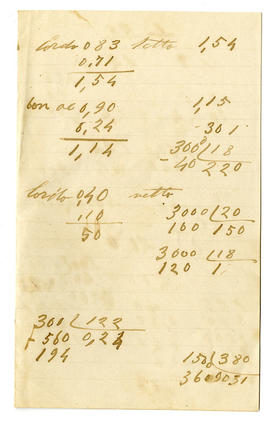 lordo 0,83 netto 1,54
0,71
1,54
0,90 1,15
0,24 301
1,14 300 18
- 40 220
lordo 0,40 netto
110 3000 20
50 100 150
3000 18
120 1
300 122
- 560 0,24
194 150 380